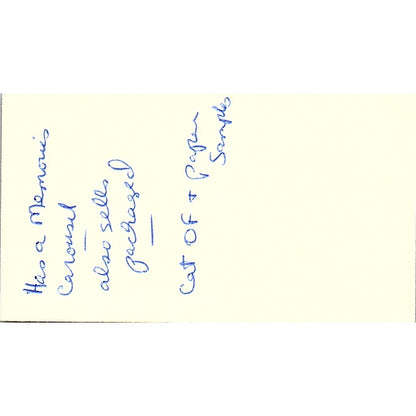 Has a Memories
Carousel
also sells
packaged
Cat OF + Paper
Samples